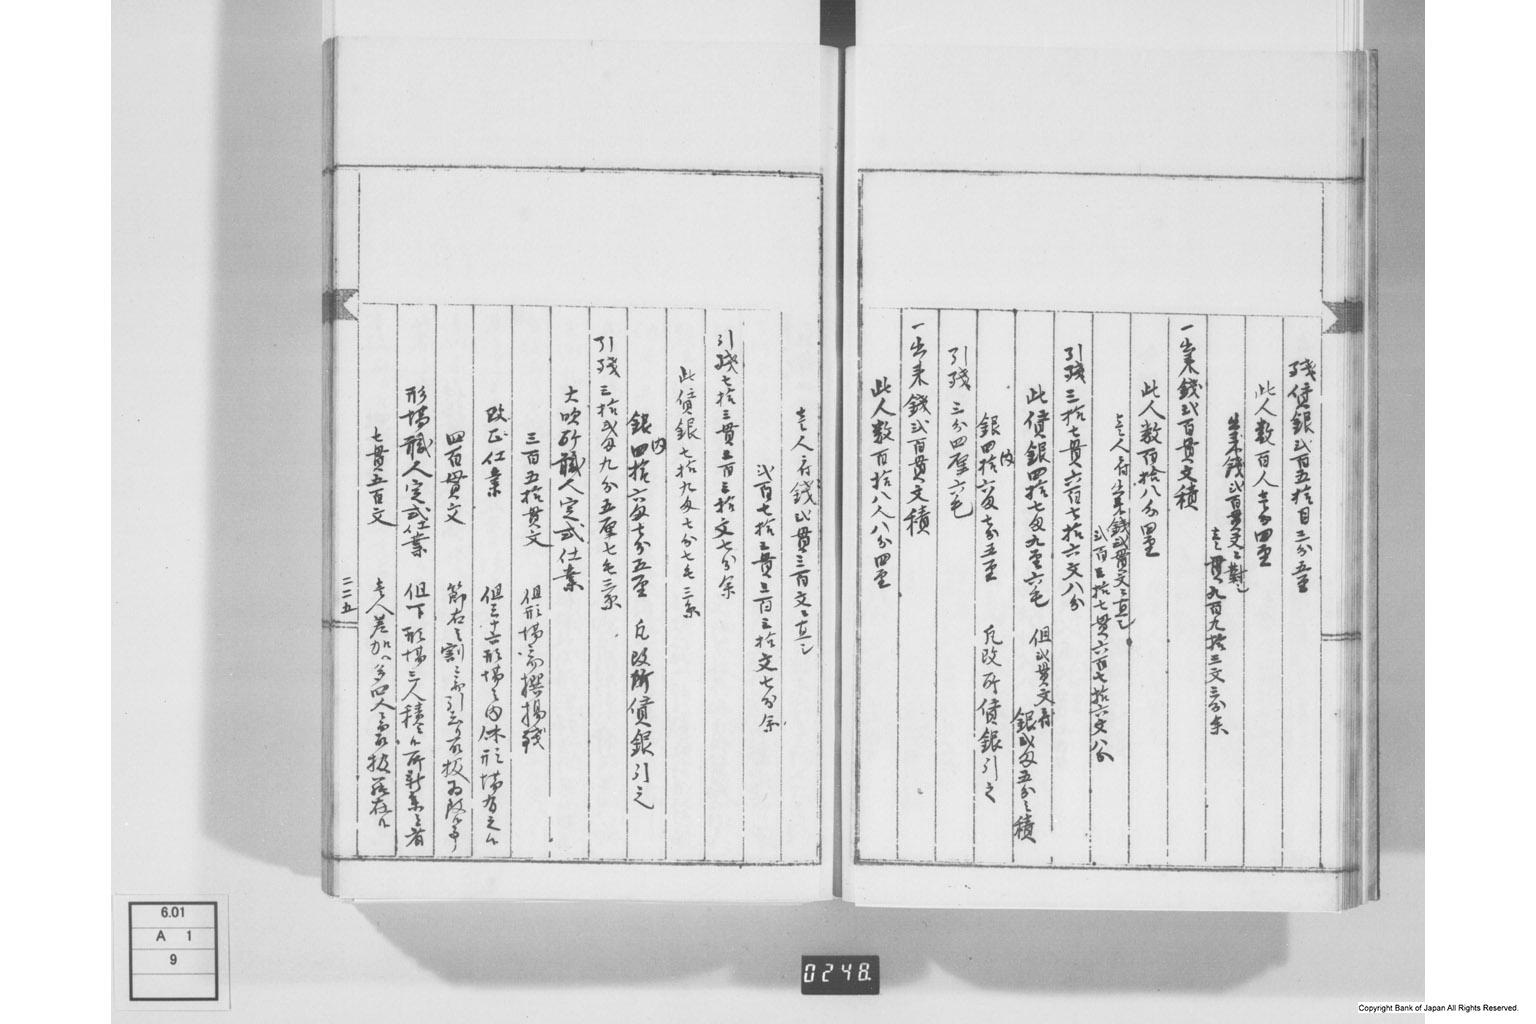 残償銀弐百五拾目三分五厘
此人数百人壱分四厘
出来銭弐百貫文ニ対し
壱〆貫九百九拾三文三分余
一出来銭弐百貫文積
此人数百拾八分四厘
壱人ニ付出来銭弐貫文ニ直し
弐百三拾七貫六百七拾六文八分
引残三拾七貫六百七拾六文八分
此償銀四拾七匁九厘六毛 但弐貫文ニ付
銀弐匁五分之積
内
銀四拾六匁壱分五厘 瓦改所償銀引之
引残三分四厘六毛
一出来銭弐百貫文積
此人数百拾八人八分四厘
壱人ニ付銭弐貫三百文ニ直し
弐百七拾三貫三百三拾文七分余
引残七拾三貫三百三拾文七分余
此償銀七拾九匁七分七毛三糸
内
銀四拾六匁壱分五厘 瓦改所償銀引之
引残三拾弐匁九分五厘七毛三糸
大吹所職人定式仕業
三百五拾貫文 但形場ニ而撰揚残
改正仕業 但三十六形場之内休形場有之候
四百貫文
形場職人定式仕業 但下形場三人積
七貫五百文
二二五
6.01
A 1
9
0248.
Copyright Bank of Japan All Rights Reserved.